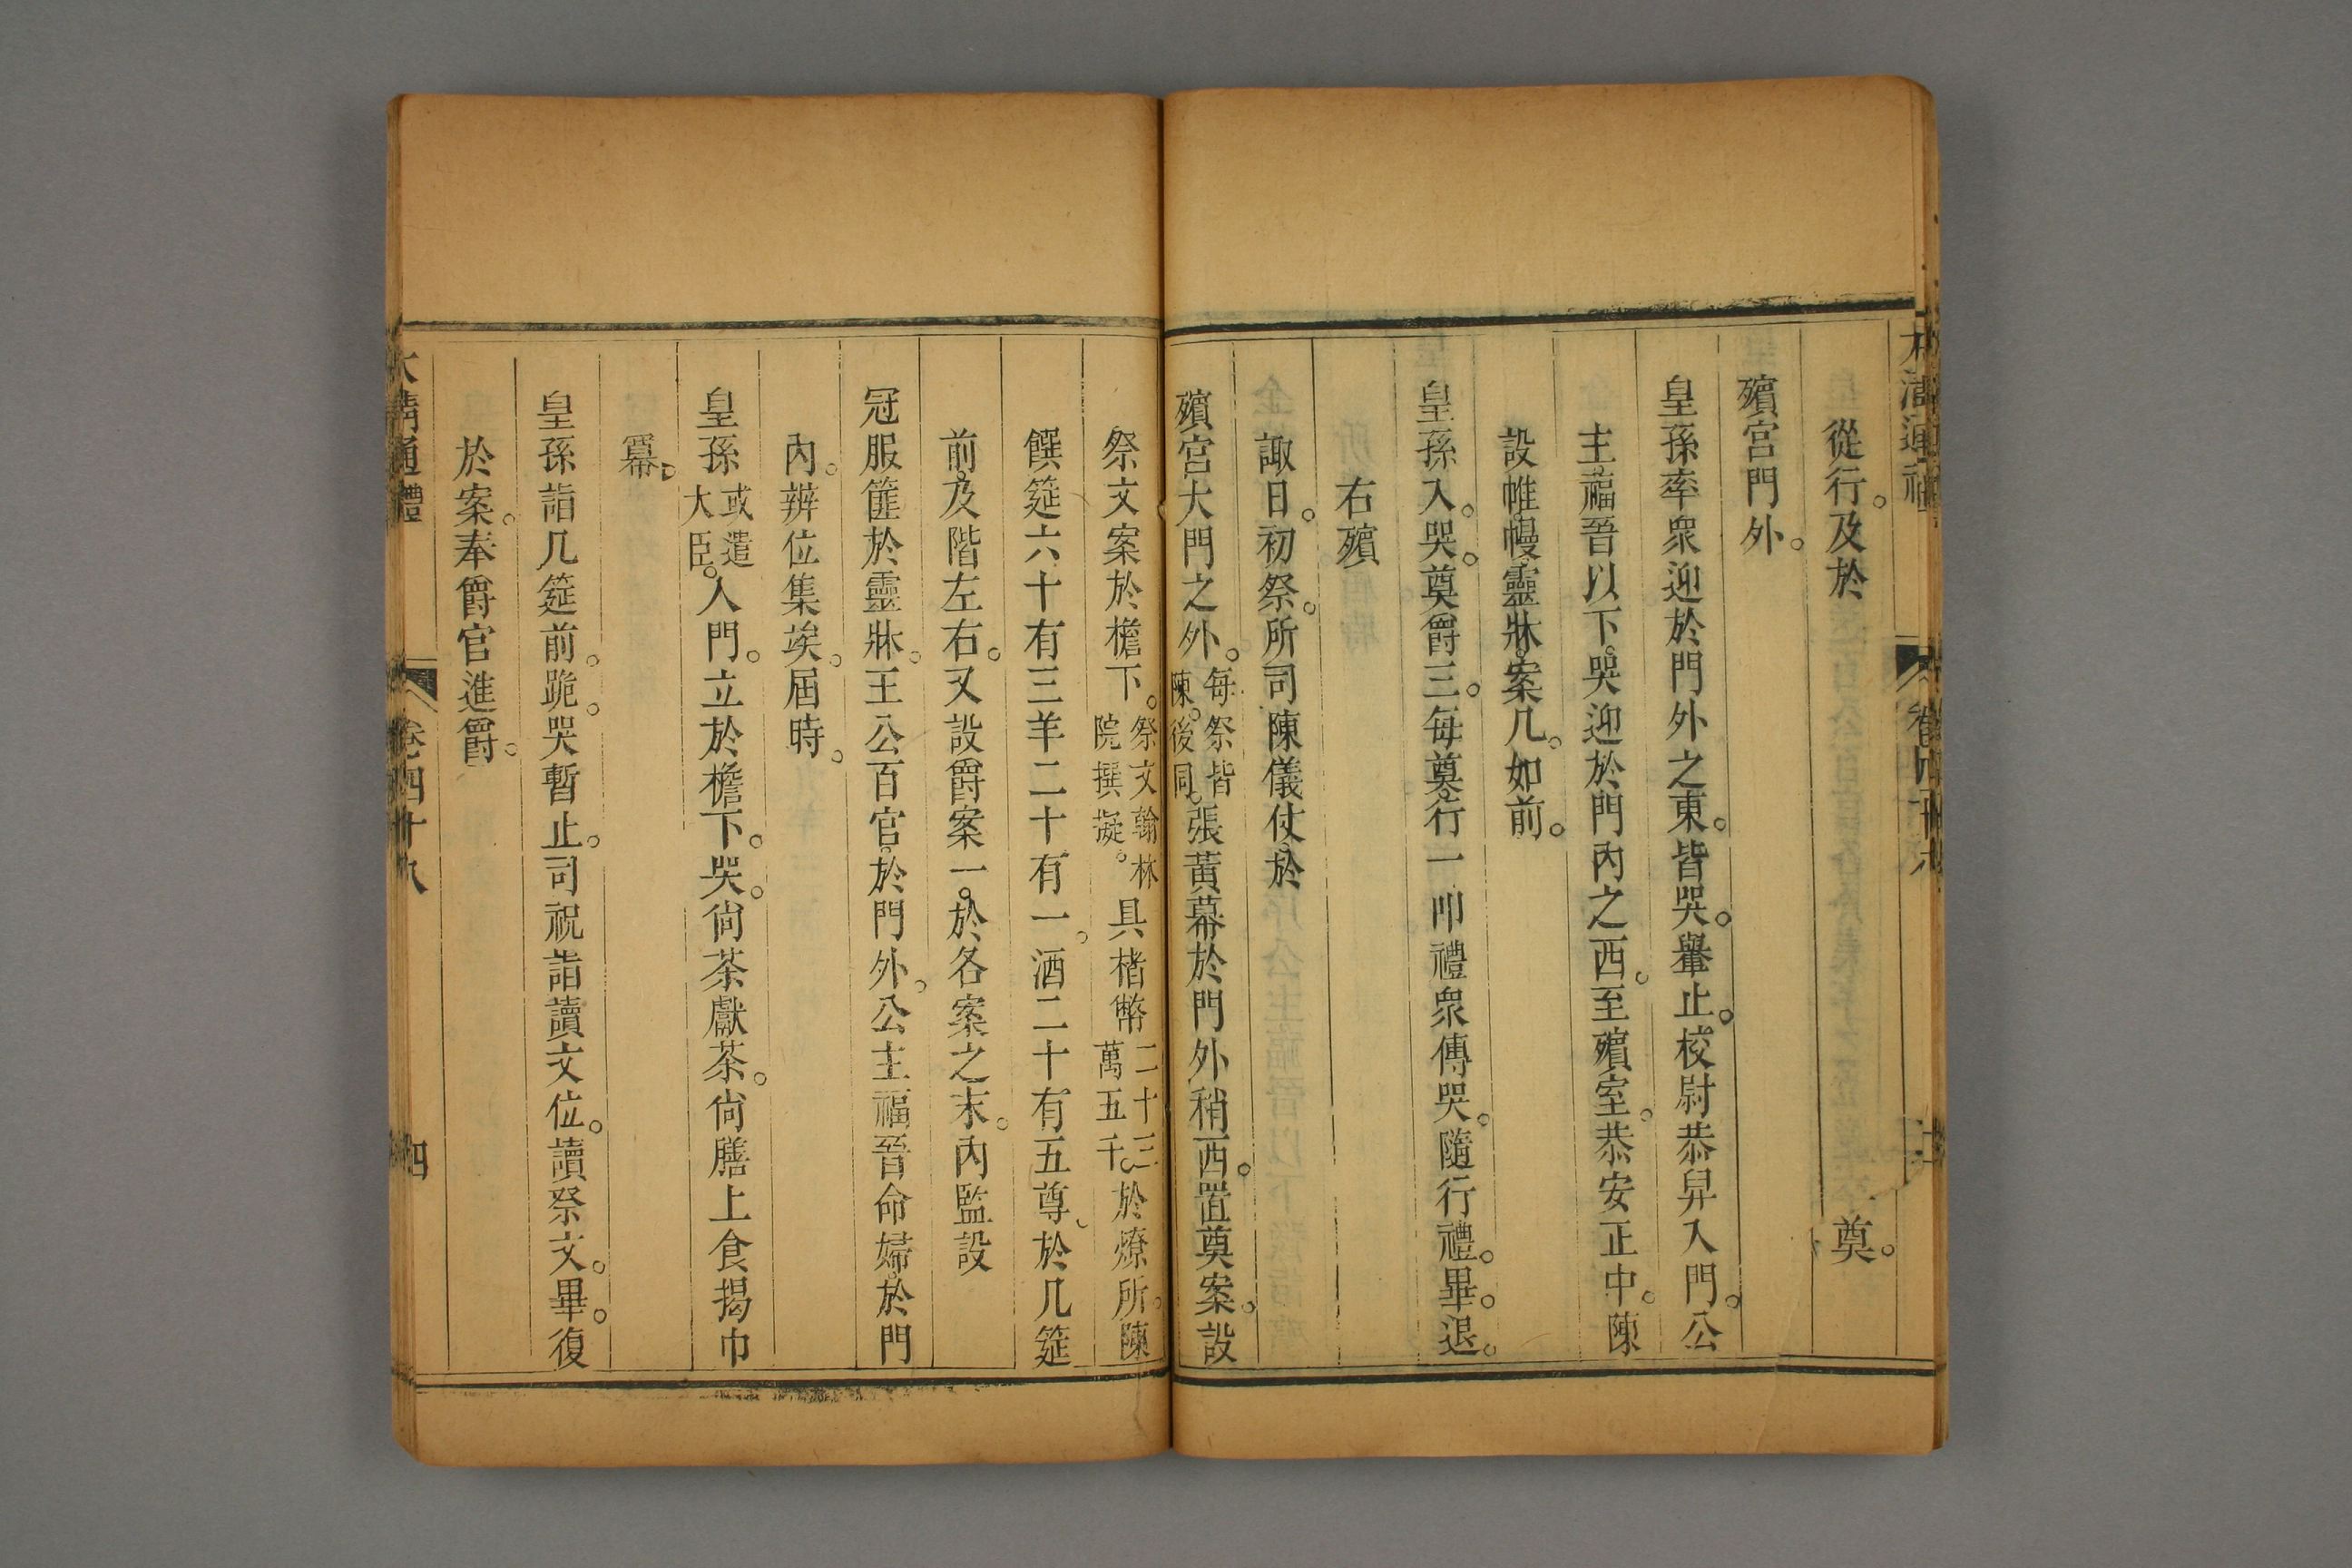 從行。及於　奠。
殯宮門外。
皇孫率眾迎於門外之東。皆哭。轝止。校尉恭舁入門。公
主福晉以下。哭迎於門內之西。至殯室。恭安正中。陳
設帷幔。靈牀。案几。如前。
皇孫入。哭。奠爵三。每奠。行一叩禮。眾傳哭。隨行禮。畢。退。
右殯
諏日。初祭。所司陳儀仗。於
殯宮大門之外。每祭皆陳。後同。張黃幕於門外稍西。置奠案。設
祭文案於檐下。祭文翰林院撰擬。具楮幣二十三萬五千。於燎所。陳
饌筵六十有三。羊二十有一。酒二十有五尊。於几筵
前。及階左右。又設爵案一。於各案之末。內監設
冠服篚於靈牀。王公百官。於門外。公主福晉命婦。於門
內。辨位集埃。屆時。
皇孫或遣大臣。入門。立於檐下。哭。尙茶獻茶。尙膳上食。揭巾
冪。
皇孫詣几筵前。跪。哭暫止。司祝詣讀文位。讀祭文。畢。復
於案。奉爵官進爵。
大清通禮
卷四十九
四